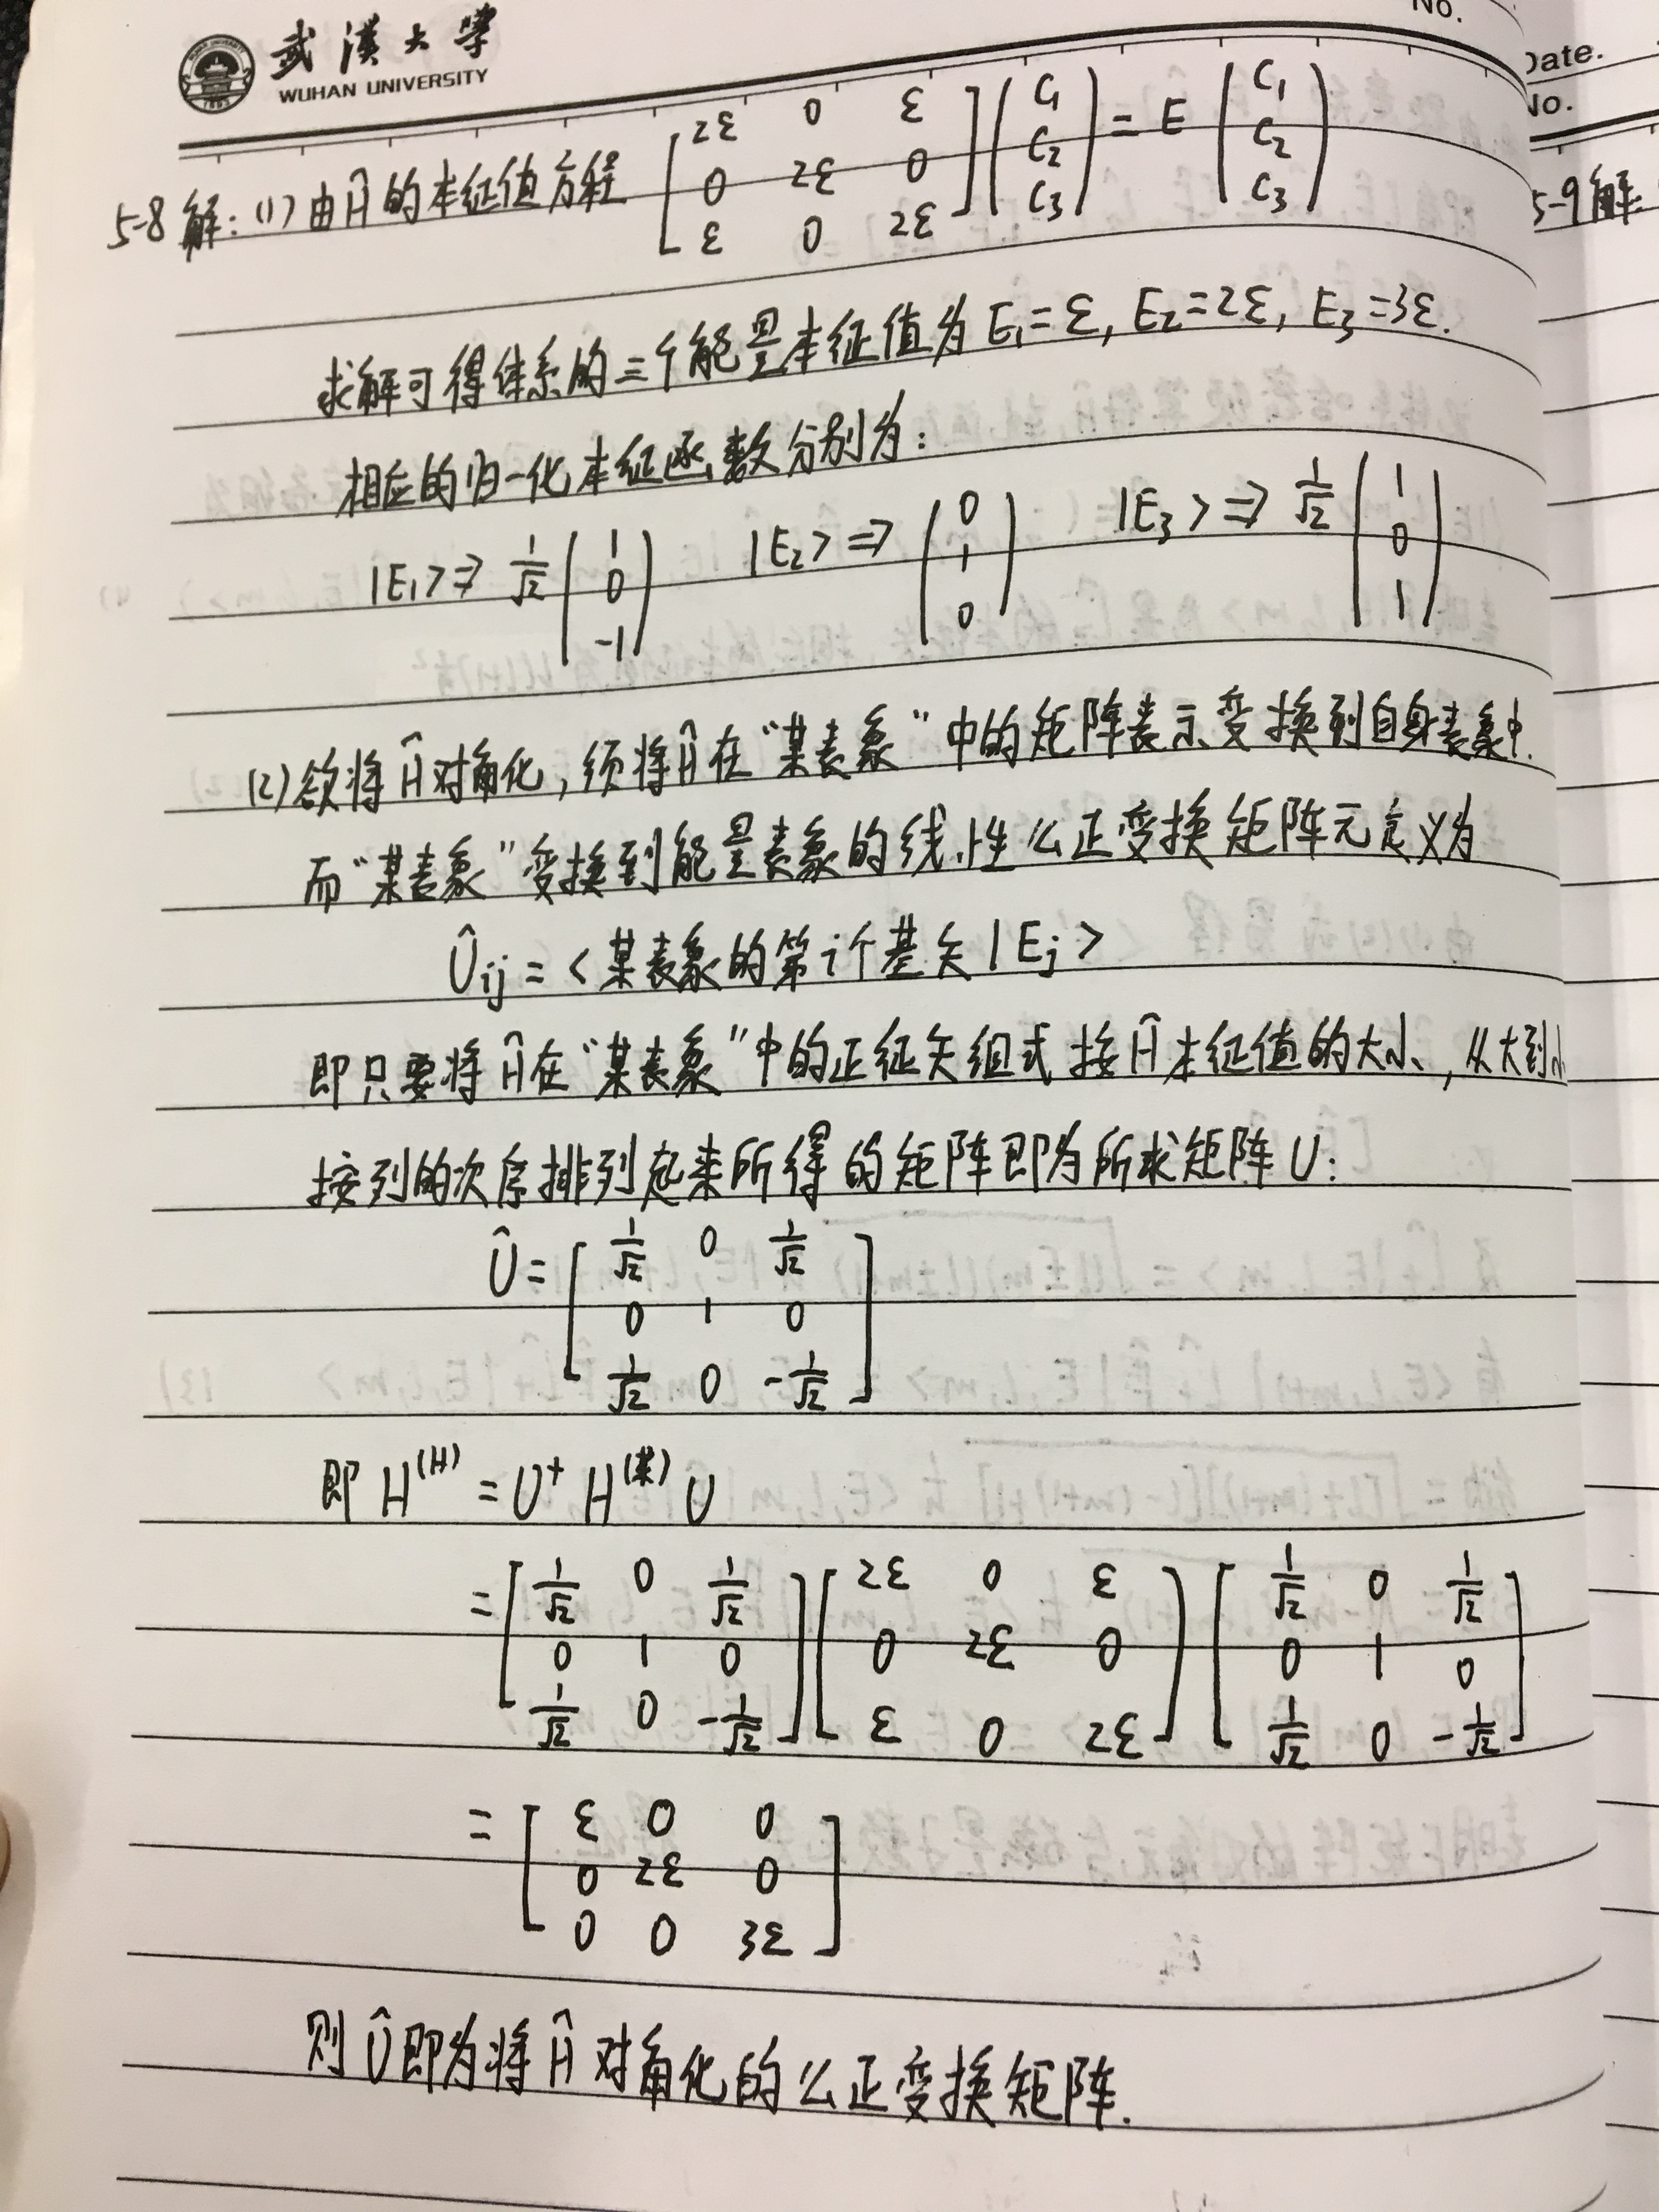 No.
武漢大學
WUHAN UNIVERSITY
Date.
No.
5-8 解: (1) 由Ĥ的本征值方程 [2ε 0 ε; 0 2ε 0; ε 0 2ε] (C₁; C₂; C₃) = E (C₁; C₂; C₃)
5-9 解:
求解可得体系的三个能量本征值为 E₁=ε, E₂=2ε, E₃=3ε.
相应的归一化本征函数分别为:
|E₁> ⇒ 1/√2 (1; 0; -1) |E₂> ⇒ (0; 1; 0) |E₃> ⇒ 1/√2 (1; 0; 1)
(2) 欲将Ĥ对角化, 须将Ĥ在“某表象”中的矩阵表示变换到自身表象中.
而“某表象”变换到能量表象的线性幺正变换矩阵元定义为
Û_ij = <某表象的第i个基矢|E_j>
即只要将Ĥ在“某表象”中的正征矢组式按Ĥ本征值的大小, 从大到小
按列的次序排列起来所得的矩阵即为所求矩阵U:
Û = [1/√2 0 1/√2; 0 1 0; 1/√2 0 -1/√2]
即 H^(H) = U⁺ H^(某) U
= [1/√2 0 1/√2; 0 1 0; 1/√2 0 -1/√2] [2ε 0 ε; 0 2ε 0; ε 0 2ε] [1/√2 0 1/√2; 0 1 0; 1/√2 0 -1/√2]
= [ε 0 0; 0 2ε 0; 0 0 3ε]
则Û即为将Ĥ对角化的幺正变换矩阵.